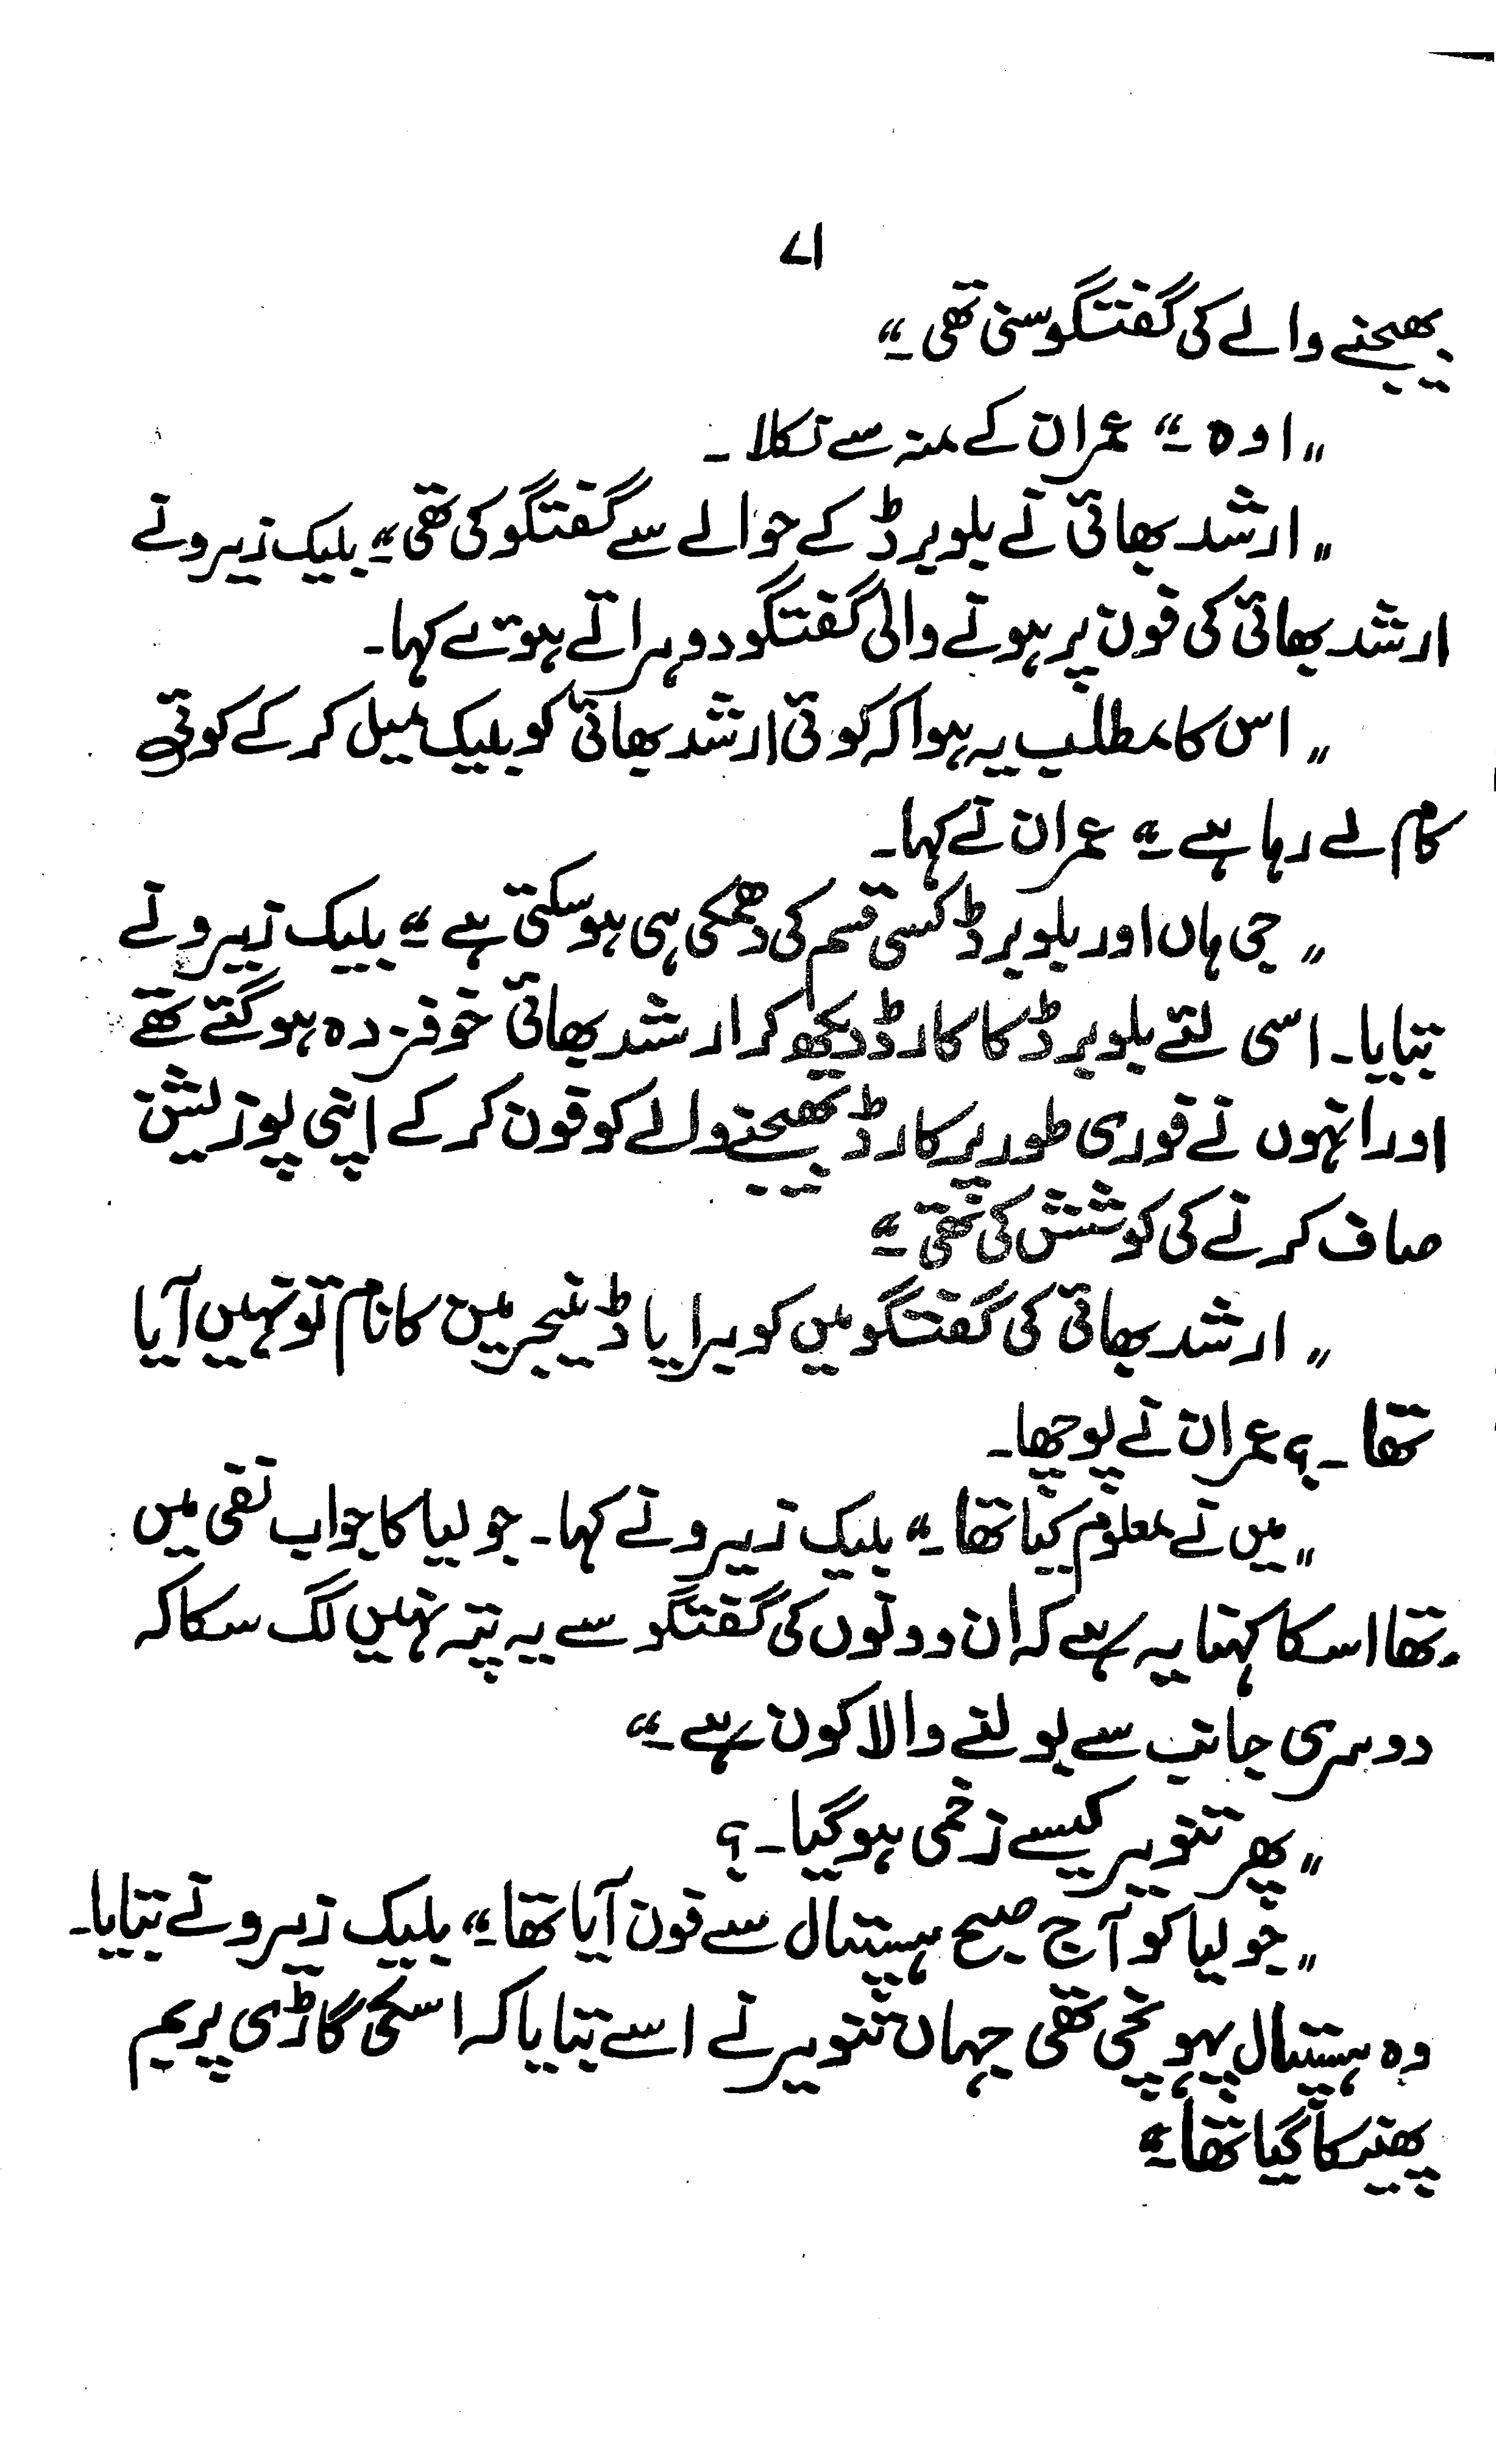 ۷۱
بھیجنے والے کی گفتگو سنی تھی۔"
"اوہ۔" عمران کے منہ سے نکلا۔
"ارشد بھائی نے بلوبرڈ کے حوالے سے گفتگو کی تھی۔" بلیک زیرو نے
ارشد بھائی کی فون پر ہونے والی گفتگو دوہراتے ہوتے کہا۔
"اس کا مطلب یہ ہوا کہ کوئی ارشد بھائی کو بلیک میل کر کے کوئی
کام لے رہا ہے۔" عمران نے کہا۔
"جی ہاں اور بلوبرڈ کسی قسم کی دھمکی ہی ہو سکتی ہے۔" بلیک زیرو نے
بتایا۔ اسی لئے بلوبرڈ کا کارڈ دیکھ کر ارشد بھائی خوفزدہ ہو گئے تھے
اور انہوں نے فوری طور پر کارڈ بھیجنے والے کو فون کر کے اپنی پوزیشن
صاف کرنے کی کوشش کی تھی۔"
"ارشد بھائی کی گفتگو میں کوبرا یا ڈینجر مین کا نام تو نہیں آیا
تھا۔؟ عمران نے پوچھا۔
"میں نے معلوم کیا تھا۔" بلیک زیرو نے کہا۔ جولیا کا جواب نفی میں
تھا اسکا کہنا یہ ہے کہ ان دونوں کی گفتگو سے یہ پتہ نہیں لگ سکا کہ
دوسری جانب سے بولنے والا کون ہے۔"
"پھر تنویر کیسے زخمی ہو گیا۔؟
"جولیا کو آج صبح ہسپتال سے فون آیا تھا۔" بلیک زیرو نے بتایا۔
وہ ہسپتال پہونچی تھی جہاں تنویر نے اسے بتایا کہ اسکی گاڑی پر بم
پھینکا گیا تھا۔"